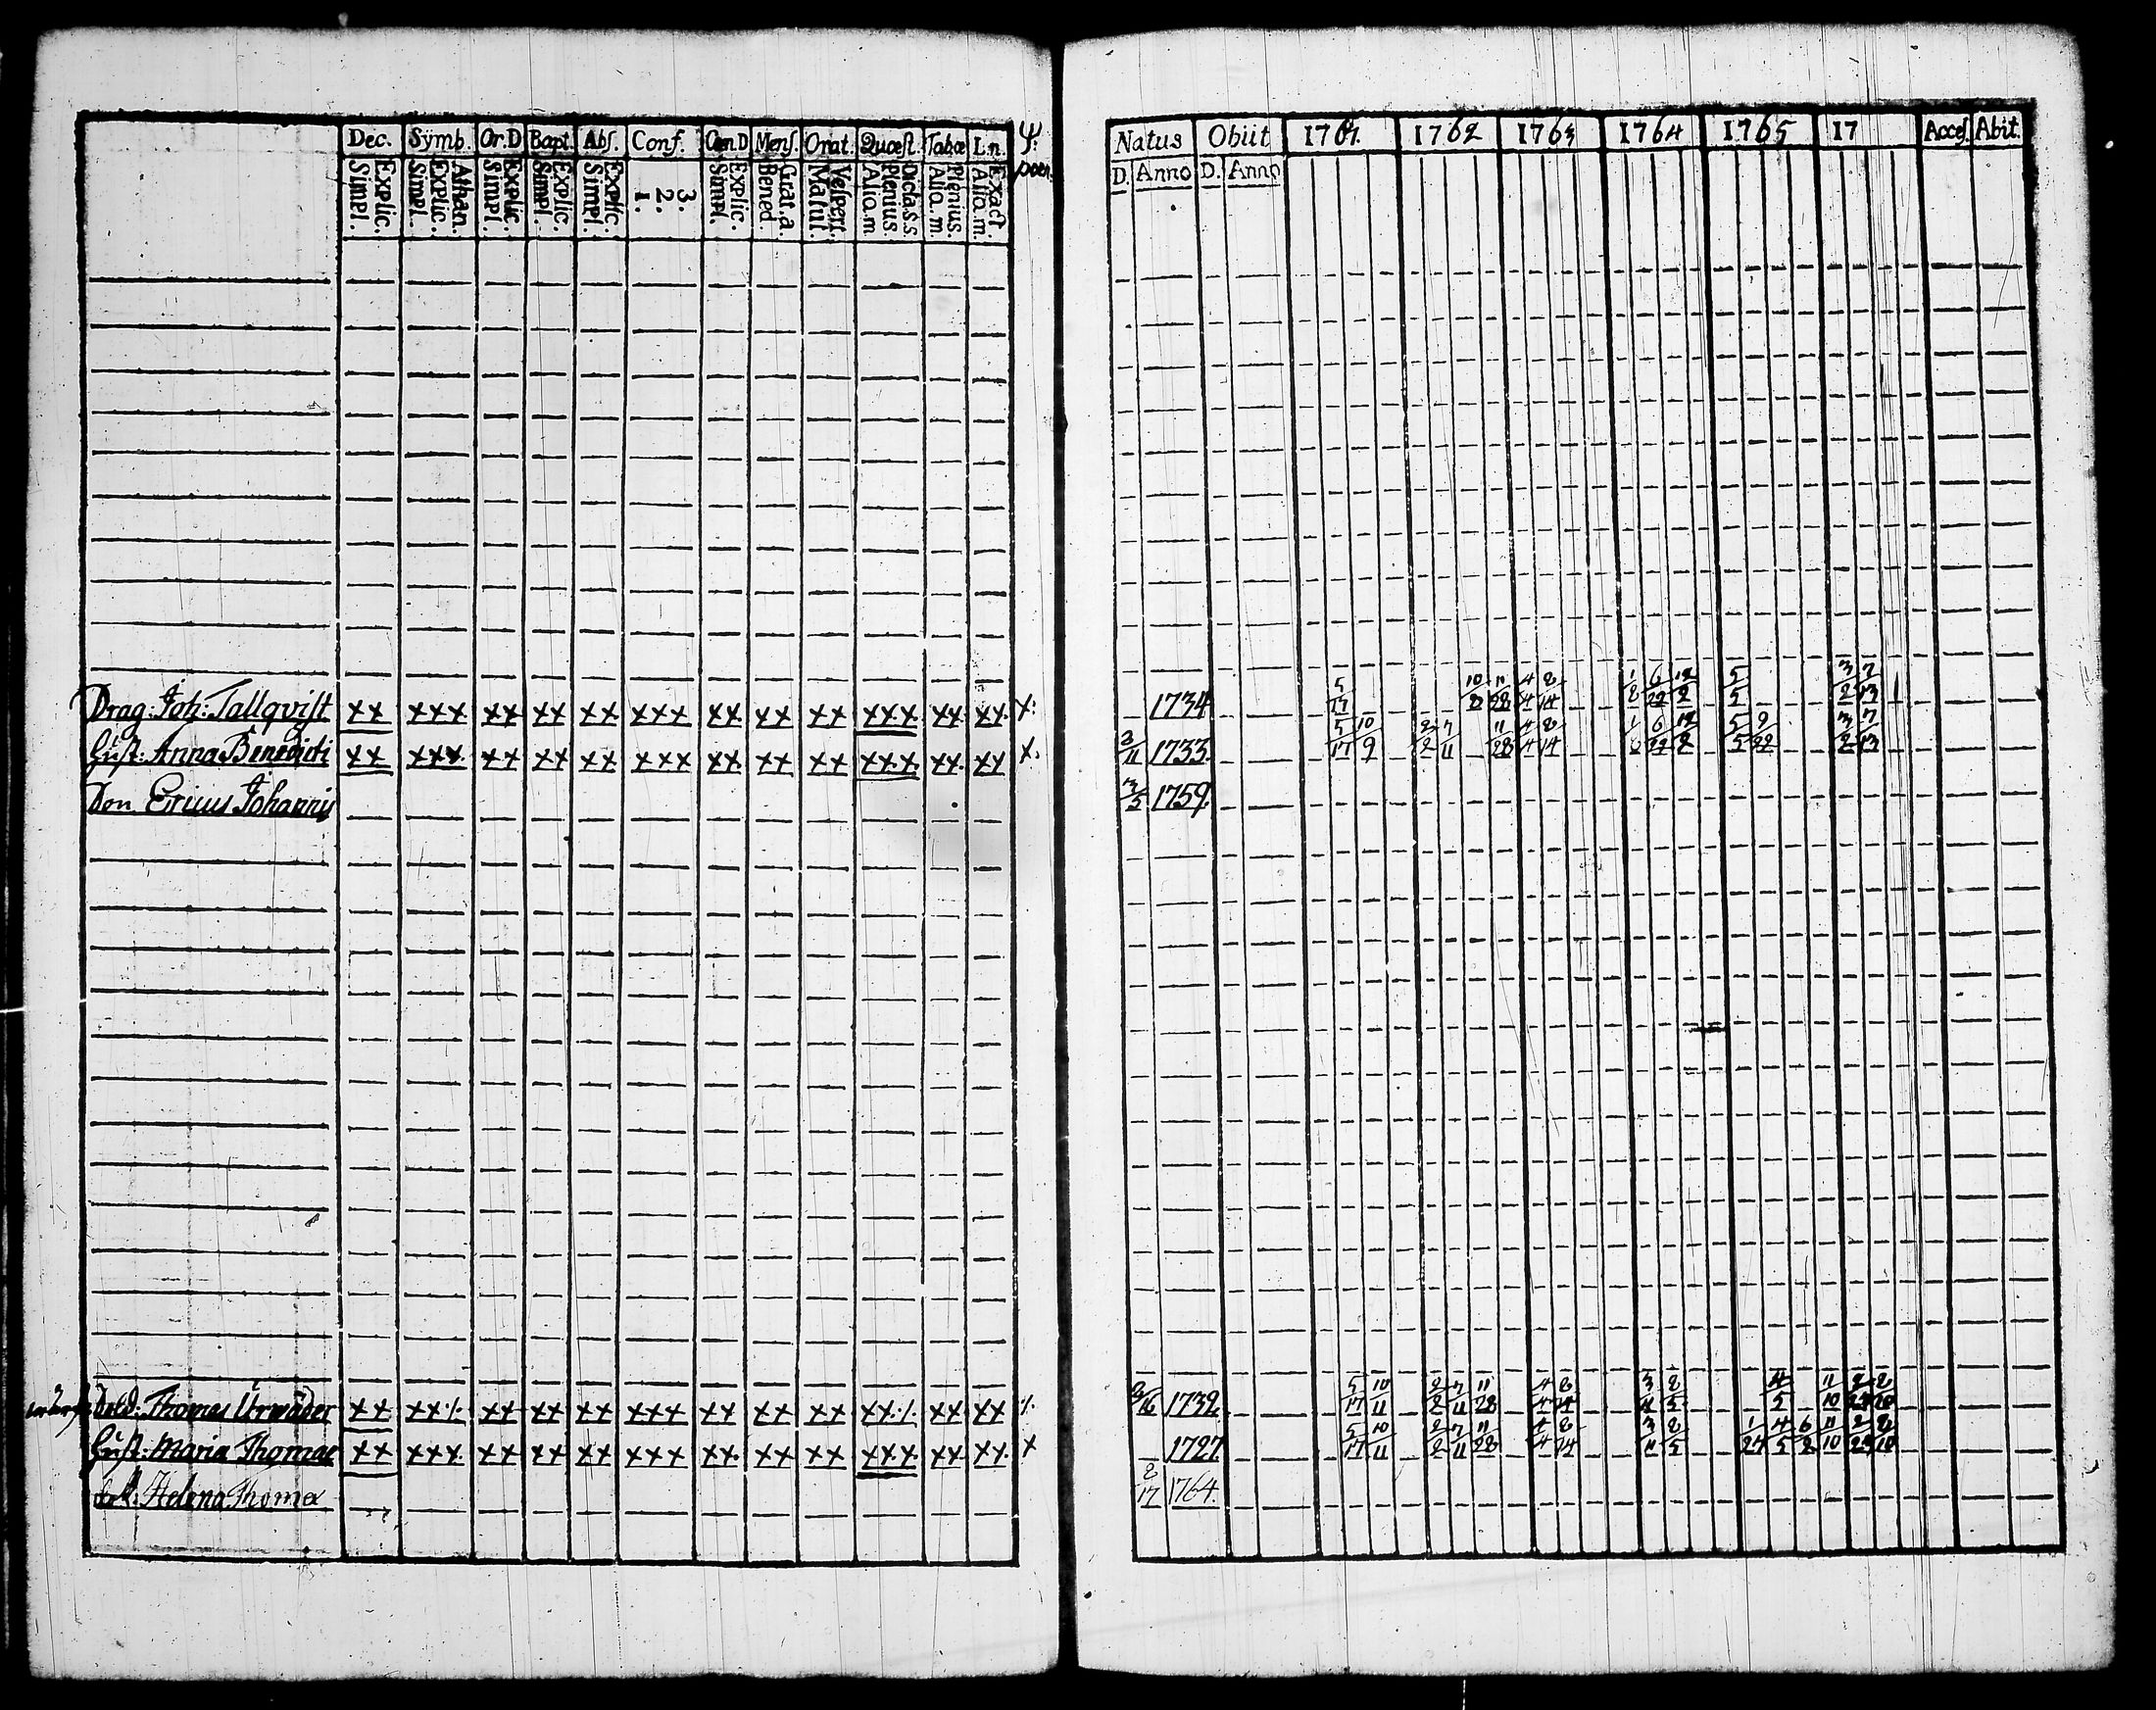 Dec. Symb. Or.D Bapt. Abs. Conf. Cœn.D Mens. Orat. Quæst. Tabœ I.n. Ψ:
Simpl. Explic. Simpl. Explic. Athan. Simpl. Explic. Simpl. Explic. Simpl. Explic. 1. 2. 3. Simpl. Explic. Bened. Grat.a. Matut. Vespert. Alio.m Plenius. Dicta.s.s. Alio.m. Plenius. Alio.m. Exact. poen.
Natus Obiit 1761. 1762 1763 1764 1765 17 Acces. Abit.
D. Anno D. Anno
Drag: Joh: Tallqvist xx xxx xx xx xx xxx xx xx xx xxx xx xx x: 1734 5/17 10/8 11/28 4/4 8/14 1/8 6/22 12/2 5/5 3/2 7/13
Hust: Anna Benedicti xx xxx xx xx xx xxx xx xx xx xxx xx xx x: 3/11 1733 5/17 10/9 2/2 7/11 11/28 4/4 8/14 1/8 6/22 12/2 5/5 9/22 3/2 7/13
Son Ericus Johannis 3/5 1759
Sold: Thomas Urwäder xx xx/. xx xx xx xxx xx xx xx xx/. xx xx /. 2/16 1732 5/17 10/11 2/2 7/11 11/28 4/4 8/14 3/11 8/5 4/5 11/10 2/23 8/10
Hust: Maria Thomae xx xxx xx xx xx xxx xx xx xx xxx xx xx x 1727 5/17 10/11 2/2 7/11 11/28 4/4 8/14 3/11 8/5 1/27 4/5 6/2 11/10 2/23 8/10
Helena Thomæ 8/17 1764